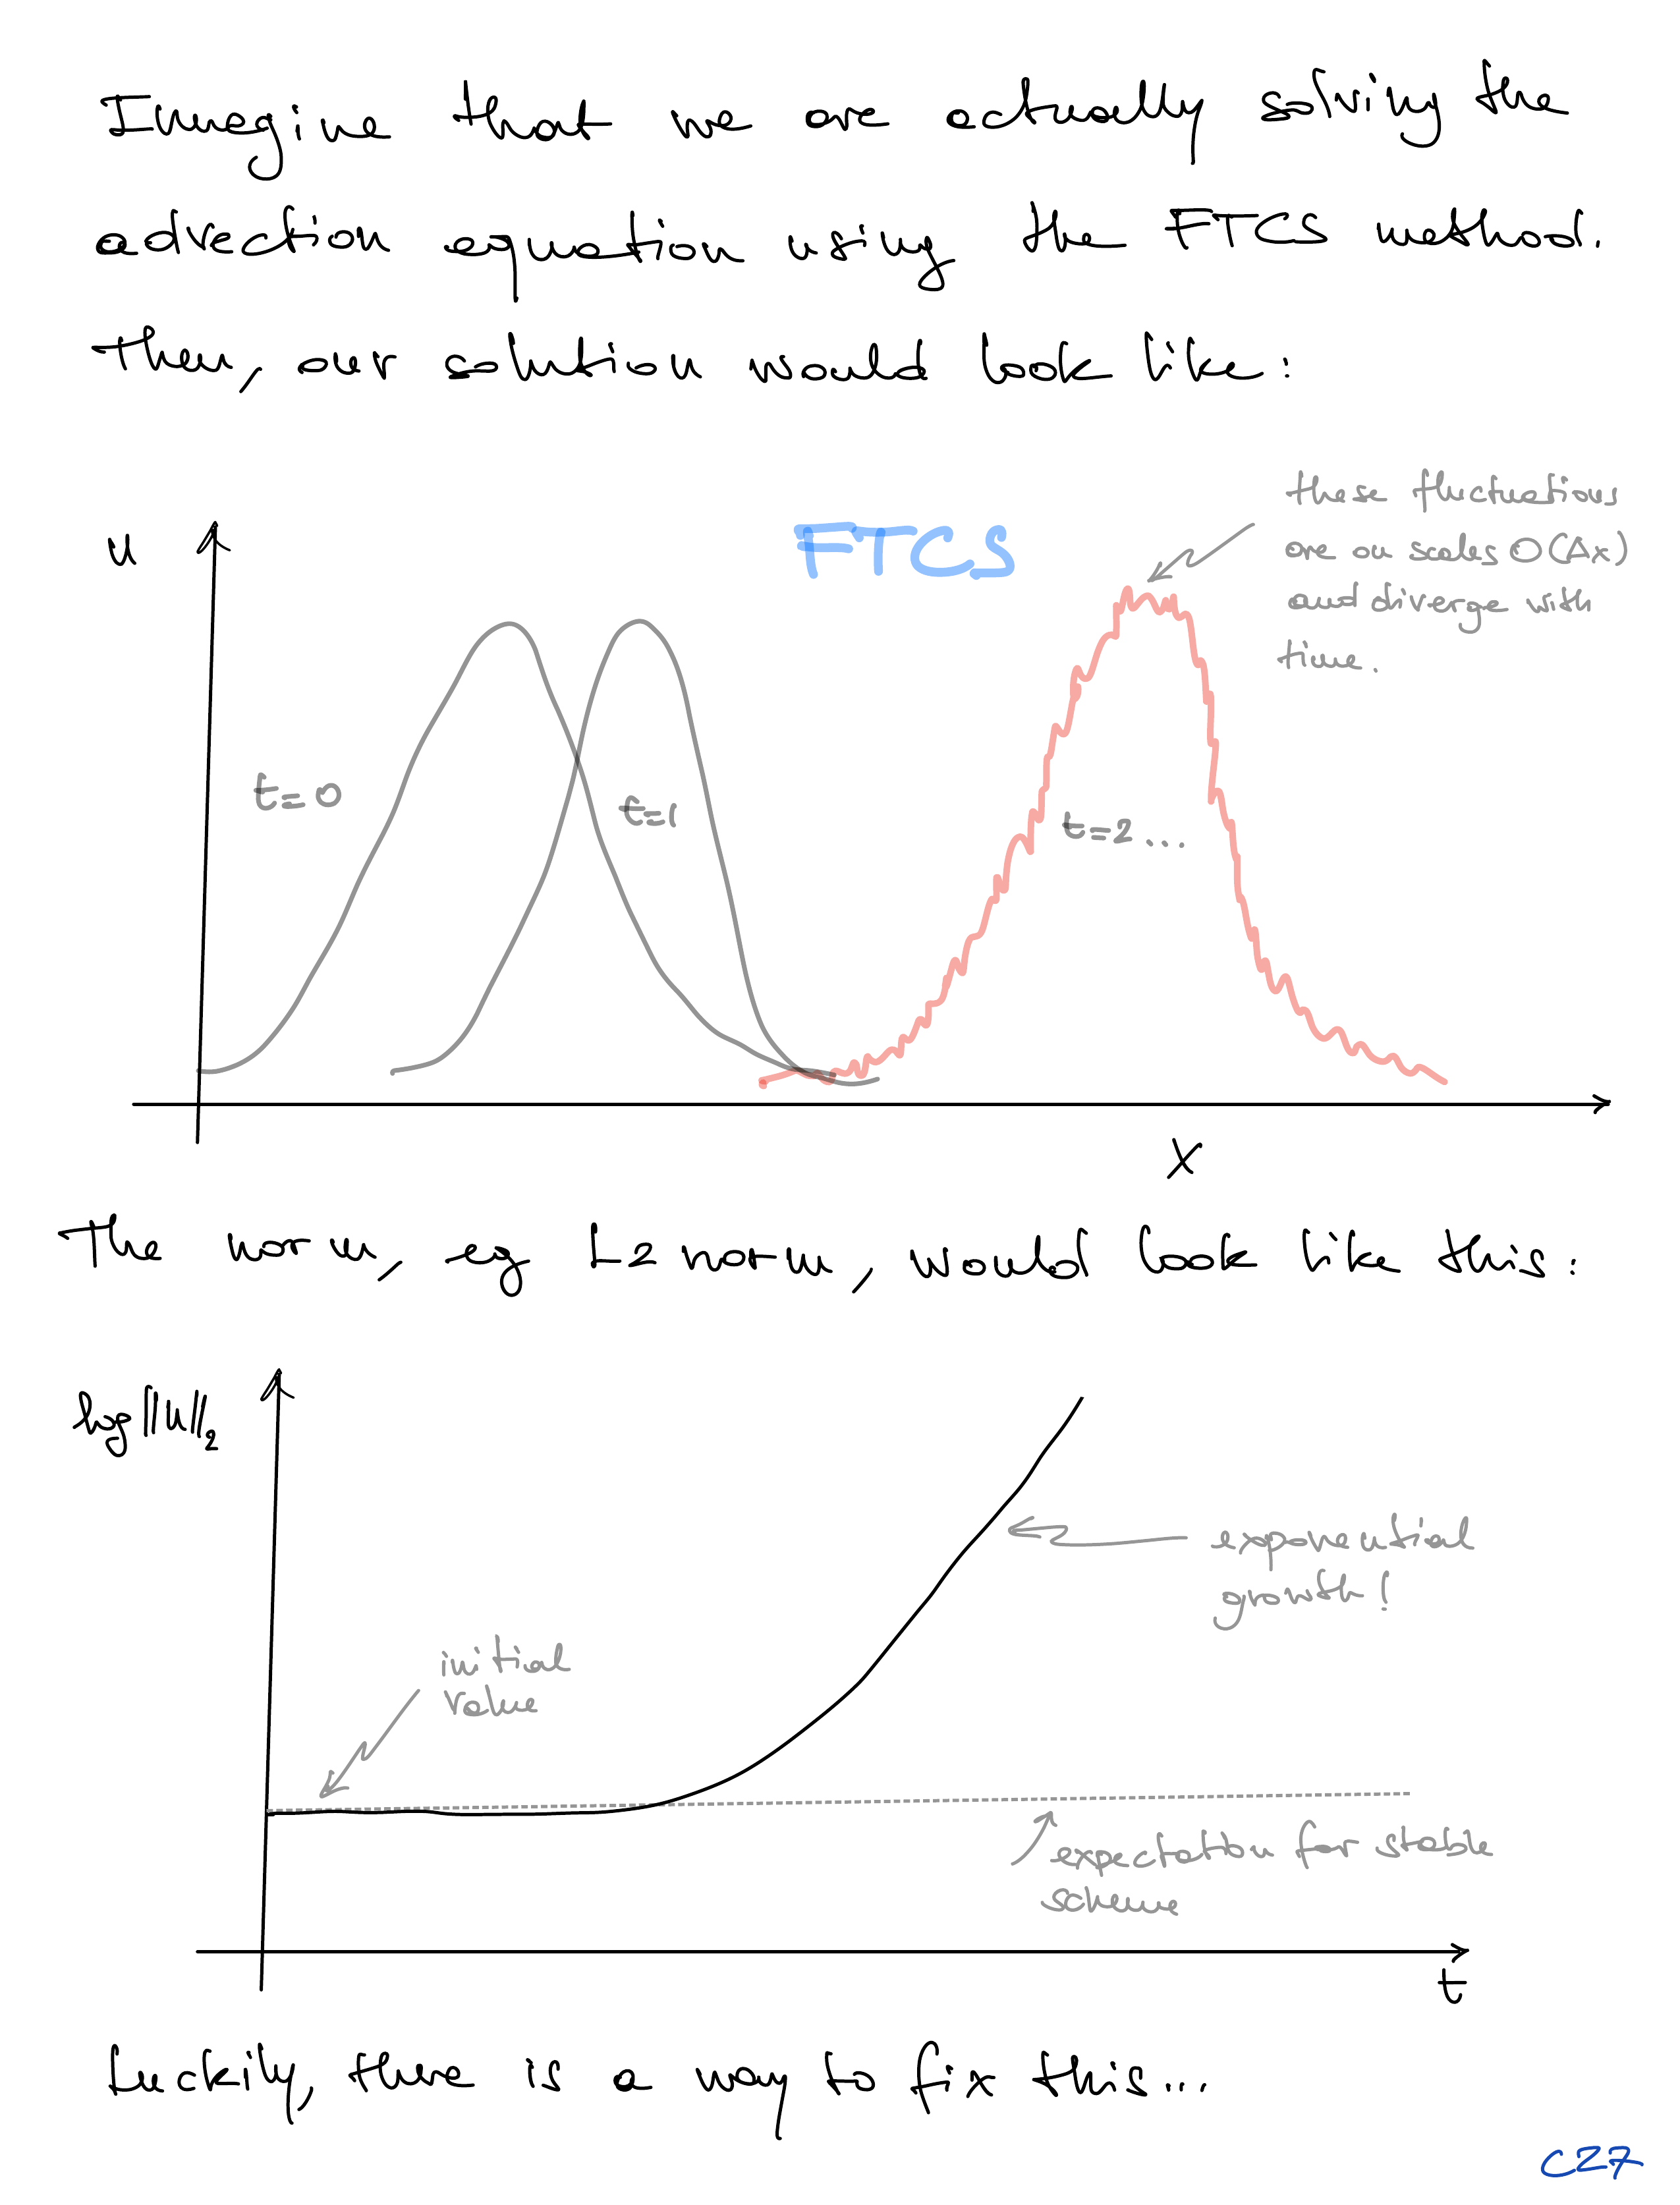 Imagine that we are actually solving the
advection equation using the FTCS method.
Then, our solution would look like:
these fluctuations
are on scales O(Δx)
and diverge with
time.
FTCS
u
t=0
t=1
t=2...
x
The norm, eg L2 norm, would look like this:
log||u||₂
exponential
growth!
initial
value
expectation for stable
scheme
t
Luckily, there is a way to fix this...
C27